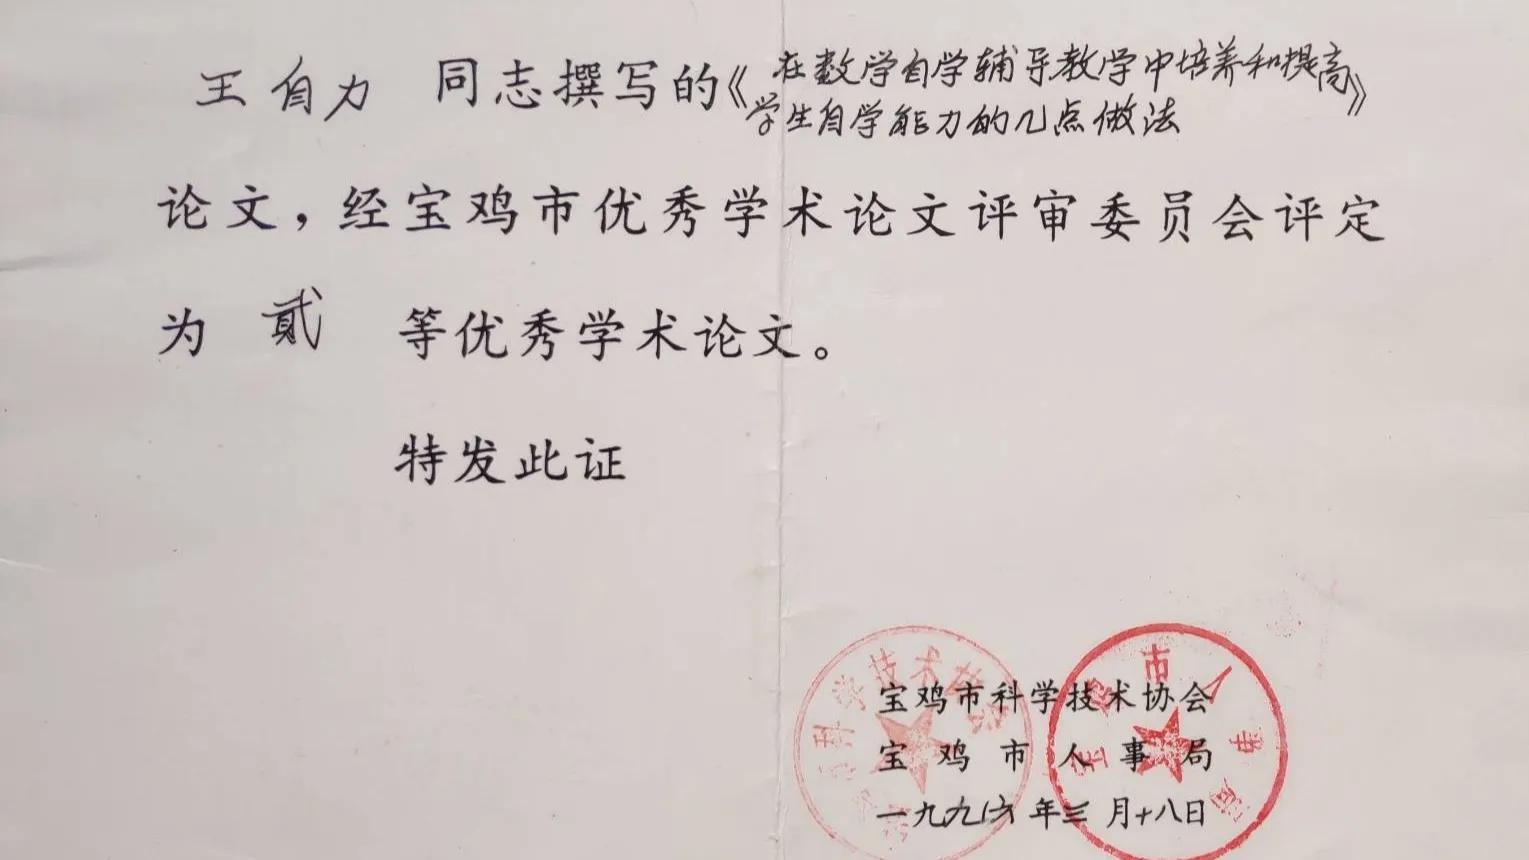 王自力 同志撰写的《在数学自学辅导教学中培养和提高
学生自学能力的几点做法》
论文，经宝鸡市优秀学术论文评审委员会评定
为 贰 等优秀学术论文。
特发此证
宝鸡市科学技术协会
宝鸡市人事局
一九九六年三月十八日